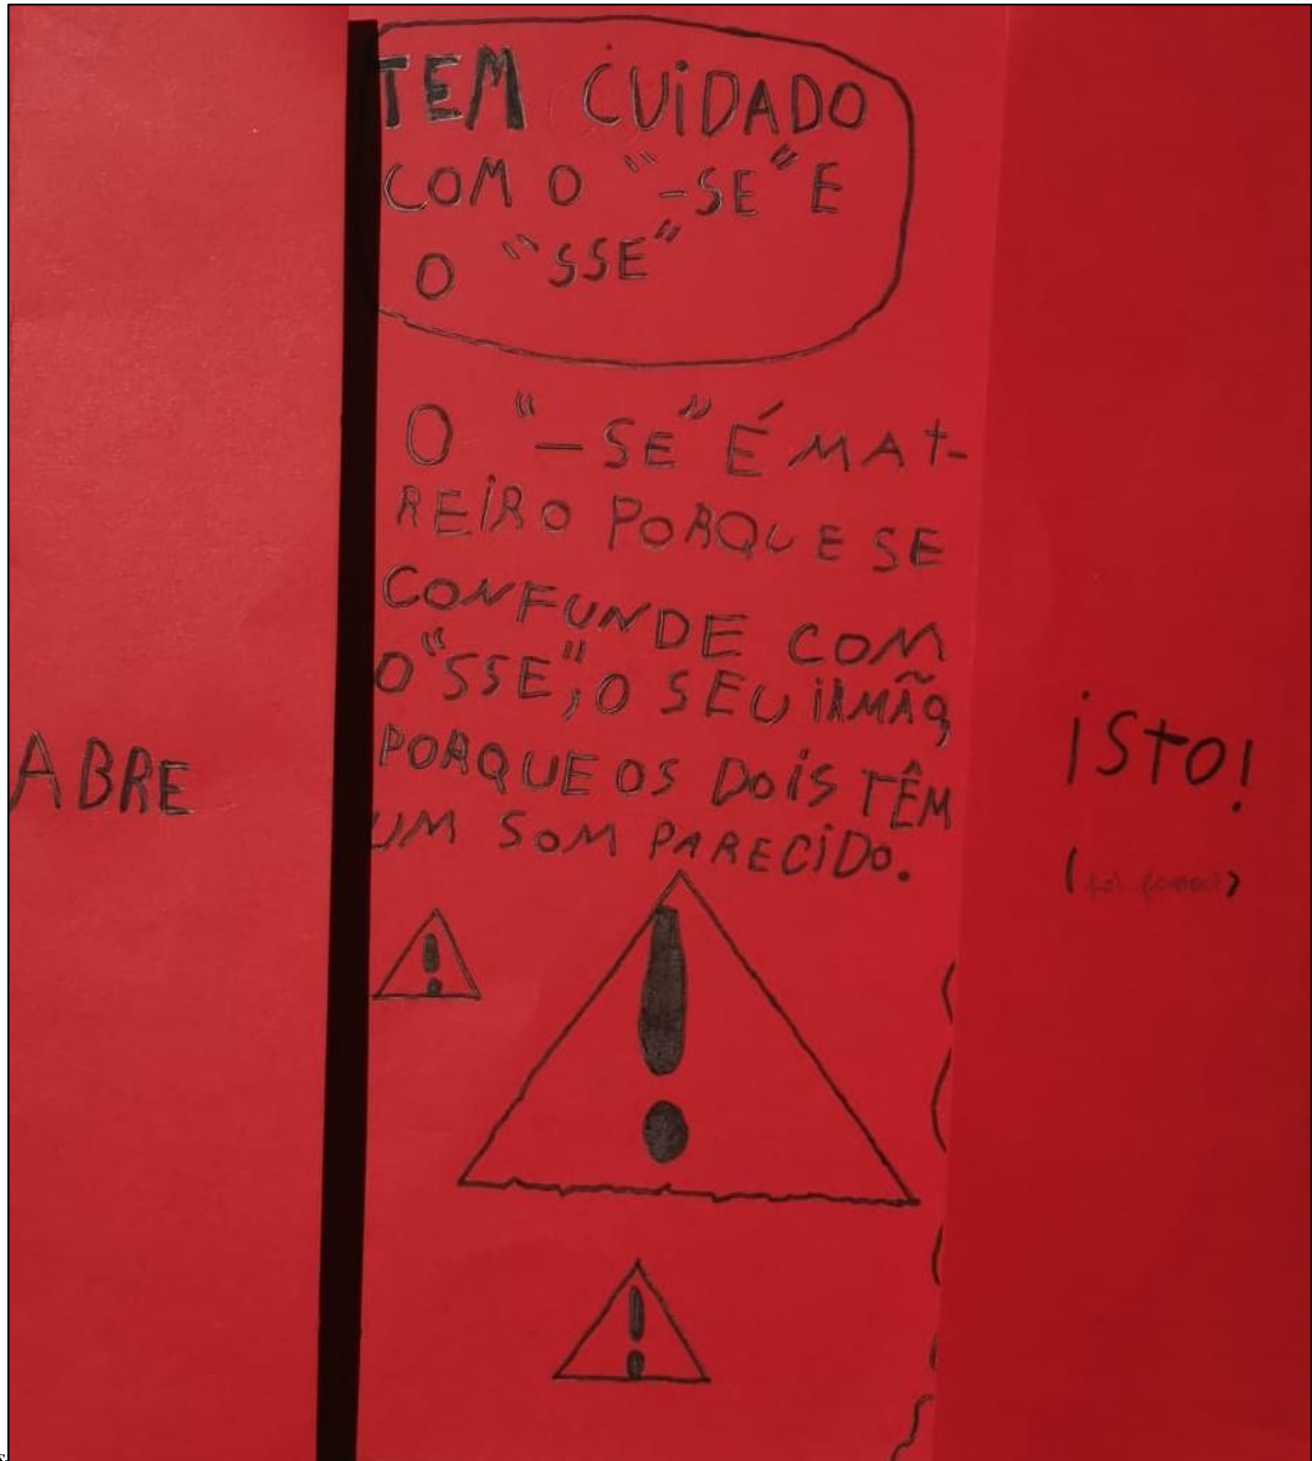 TEM CUIDADO
COM O "-SE" E
O "SSE"
O "-SE" É MAT-
REIRO PORQUE SE
CONFUNDE COM
O "SSE", O SEU IRMÃO,
PORQUE OS DOIS TÊM
UM SOM PARECIDO.
ABRE
ISTO!